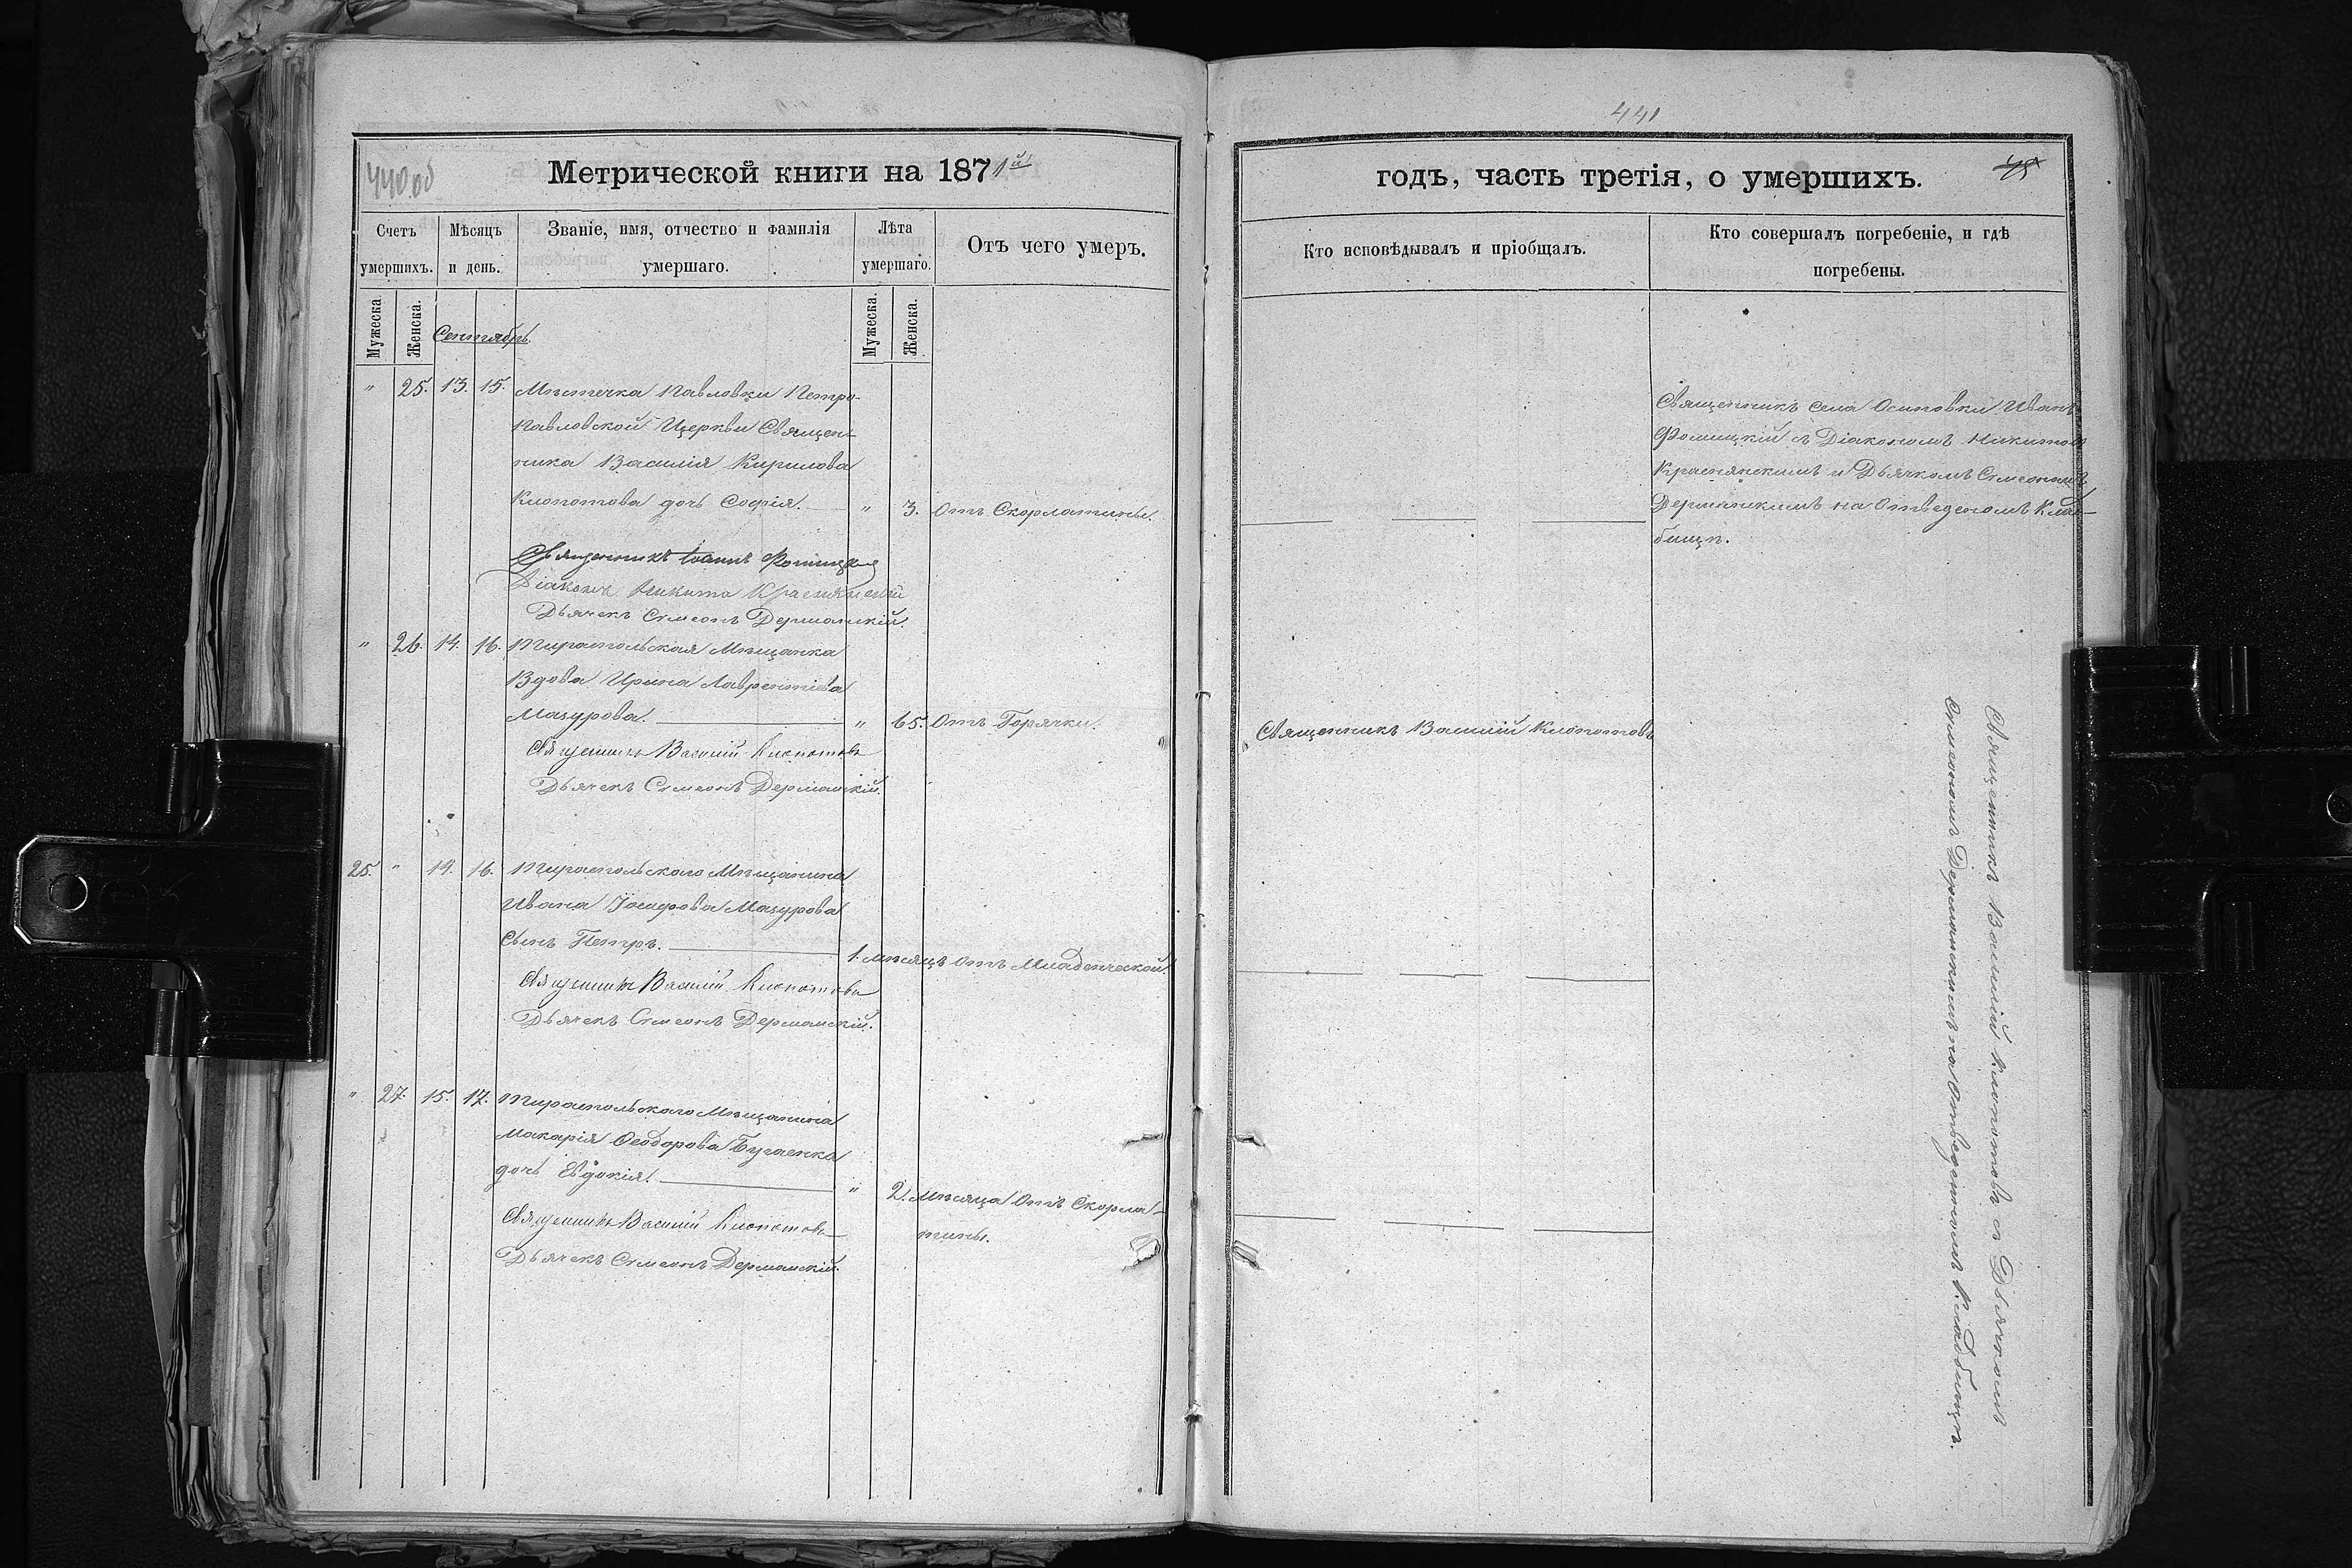 440 об
Метрической книги на 1871й
Счетъ умершихъ.
Мѣсяцъ и день.
Званіе, имя, отчество и фамилія умершаго.
Лѣта умершаго.
Отъ чего умеръ.
Мужеска.
Женска.
Мужеска.
Женска.
Сентябрь
" 25. 13. 15. Мѣстечка Павловки Петро-
Павловской Церкви Священ-
ника Василія Кирилова
Клопотова дочь Софія. " 3. Отъ Скорлатины.
Священникъ Іоаннъ Фомицкій
Діаконъ Никита Краснянскій
Дьячекъ Симеонъ Дерманскій.
" 26. 14. 16. Тираспольская Мѣщанка
Вдова Ирина Лаврентіева
Мазурова. " 65. Отъ Горячки.
Священникъ Василій Клопотовъ
Дьячекъ Симеонъ Дерманскій.
25. " 14. 16. Тираспольского Мѣщанина
Ивана Іосифова Мазурова
Сынъ Петръ. 1. мѣсяцъ Отъ Младенческой.
Священникъ Василій Клопотовъ
Дьячекъ Симеонъ Дерманскій.
" 27. 15. 17. Тираспольского Мѣщанина
Макарія Ѳеодорова Бугаенка
дочь Евдокія. " 2. Мѣсяца Отъ Скорла-
тины.
Священникъ Василій Клопотовъ
Дьячекъ Симеонъ Дерманскій.
441
годъ, часть третія, о умершихъ.
Кто исповѣдывалъ и пріобщалъ.
Кто совершалъ погребеніе, и гдѣ погребены.
Священникъ села Осиповки Иванъ
Фомицкій съ Діакономъ Никитою
Краснянскимъ и Дьячкомъ Симеономъ
Дерманскимъ на Отведеномъ Клад-
бищѣ.
Священникъ Василій Клопотовъ
Священникъ Василій Клопотовъ съ Дьячкомъ
Симеономъ Дерманскимъ на Отведенномъ Кладбищѣ.